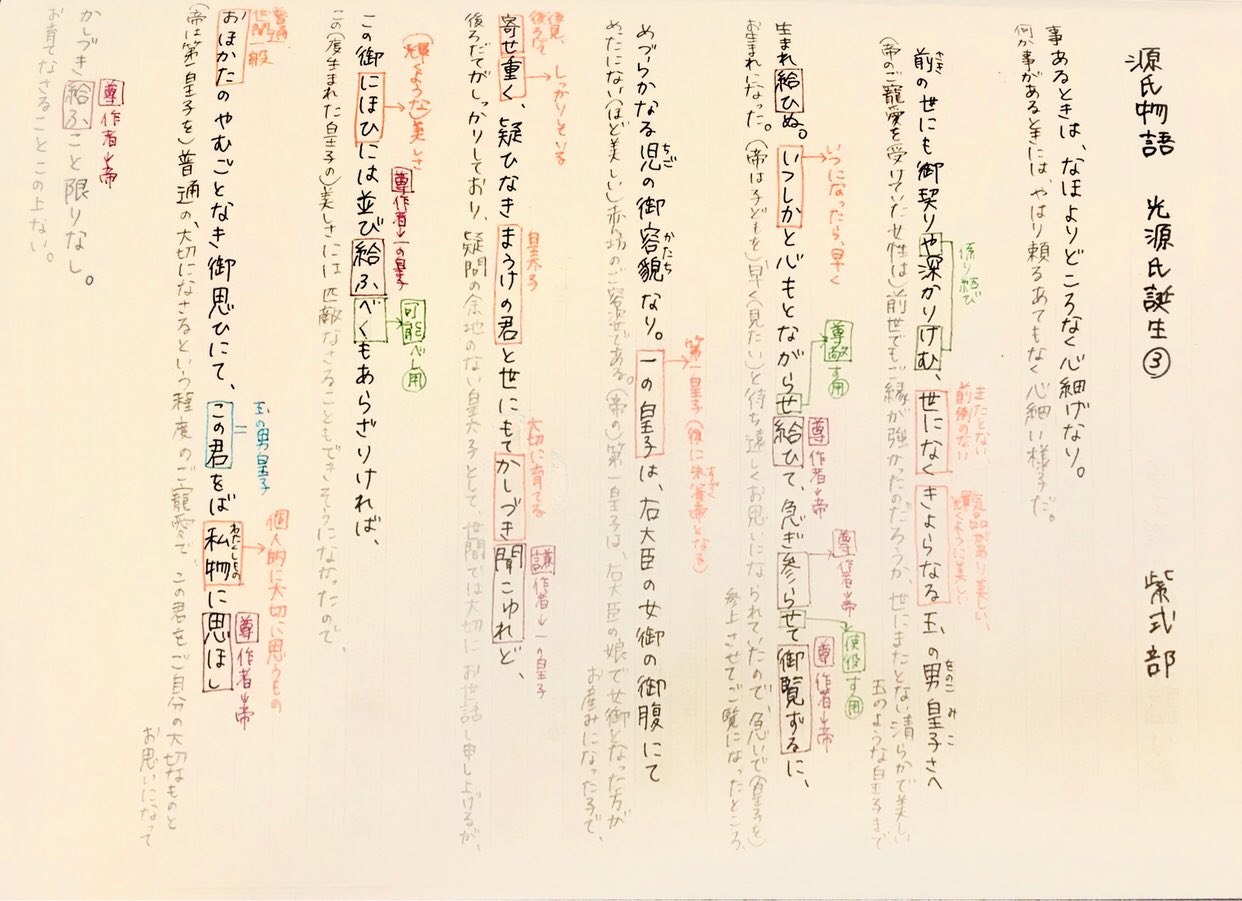 源氏物語　光源氏誕生③　紫式部
事あるときは、なほよりどころなく心細げなり。
何か事があるときには、やはり頼るあてもなく心細い様子だ。
係り結び
またとない、前例のない
気品があり美しい、輝くように美しい
前の世にも御契りや深かりけむ、世になくきよらなる玉の男皇子さへ
さき
をのこみこ
(帝のご寵愛を受けていた女性は)前世でもご縁が強かったのだろうか、世にまたとない清らかで美しい
玉のような皇子まで
いつになったら、早く
尊敬 す用
尊 作者→帝
尊 作者→帝
使役 す用
尊 作者→帝
生まれ給ひぬ。いつしかと心もとながらせ給ひて、急ぎ参らせて御覧ずるに、
お生まれになった。(帝は子どもを)早く(見たい)と待ち遠しくお思いになられていたので、急いで(皇子を)
参上させてご覧になったところ、
第一皇子(後に朱雀帝となる)
すざく
めづらかなる児の御容貌なり。一の皇子は、右大臣の女御の御腹にて
ちご
かたち
めったにない(ほど美しい)赤坊のご容姿である。(帝の)第一皇子は、右大臣の娘で女御となった方が
お産みになった子で、
後見、後ろだて
しっかりしている
皇太子
大切に育てる
謙 作者→一の皇子
寄せ重く、疑ひなきまうけの君と世にもてかしづき聞こゆれど、
後ろだてがしっかりしており、疑問の余地のない皇太子として、世間では大切にお世話し申し上げるが、
(輝くような)美しさ
尊 作者→一の皇子
可能 べし用
この御にほひには並び給ふべくもあらざりければ、
この(度生まれた皇子の)美しさには匹敵なさることもできそうになかったので、
普通、世間一般
玉の男皇子
個人的に大切に思うもの
尊 作者→帝
おほかたのやむごとなき御思ひにて、この君をば私物に思ほし
わたくしもの
(帝は第一皇子を)普通の、大切になさるという程度のご寵愛で、この君をご自分の大切なものと
お思いになって
尊 作者→帝
かしづき給ふこと限りなし。
お育てなさることこの上ない。